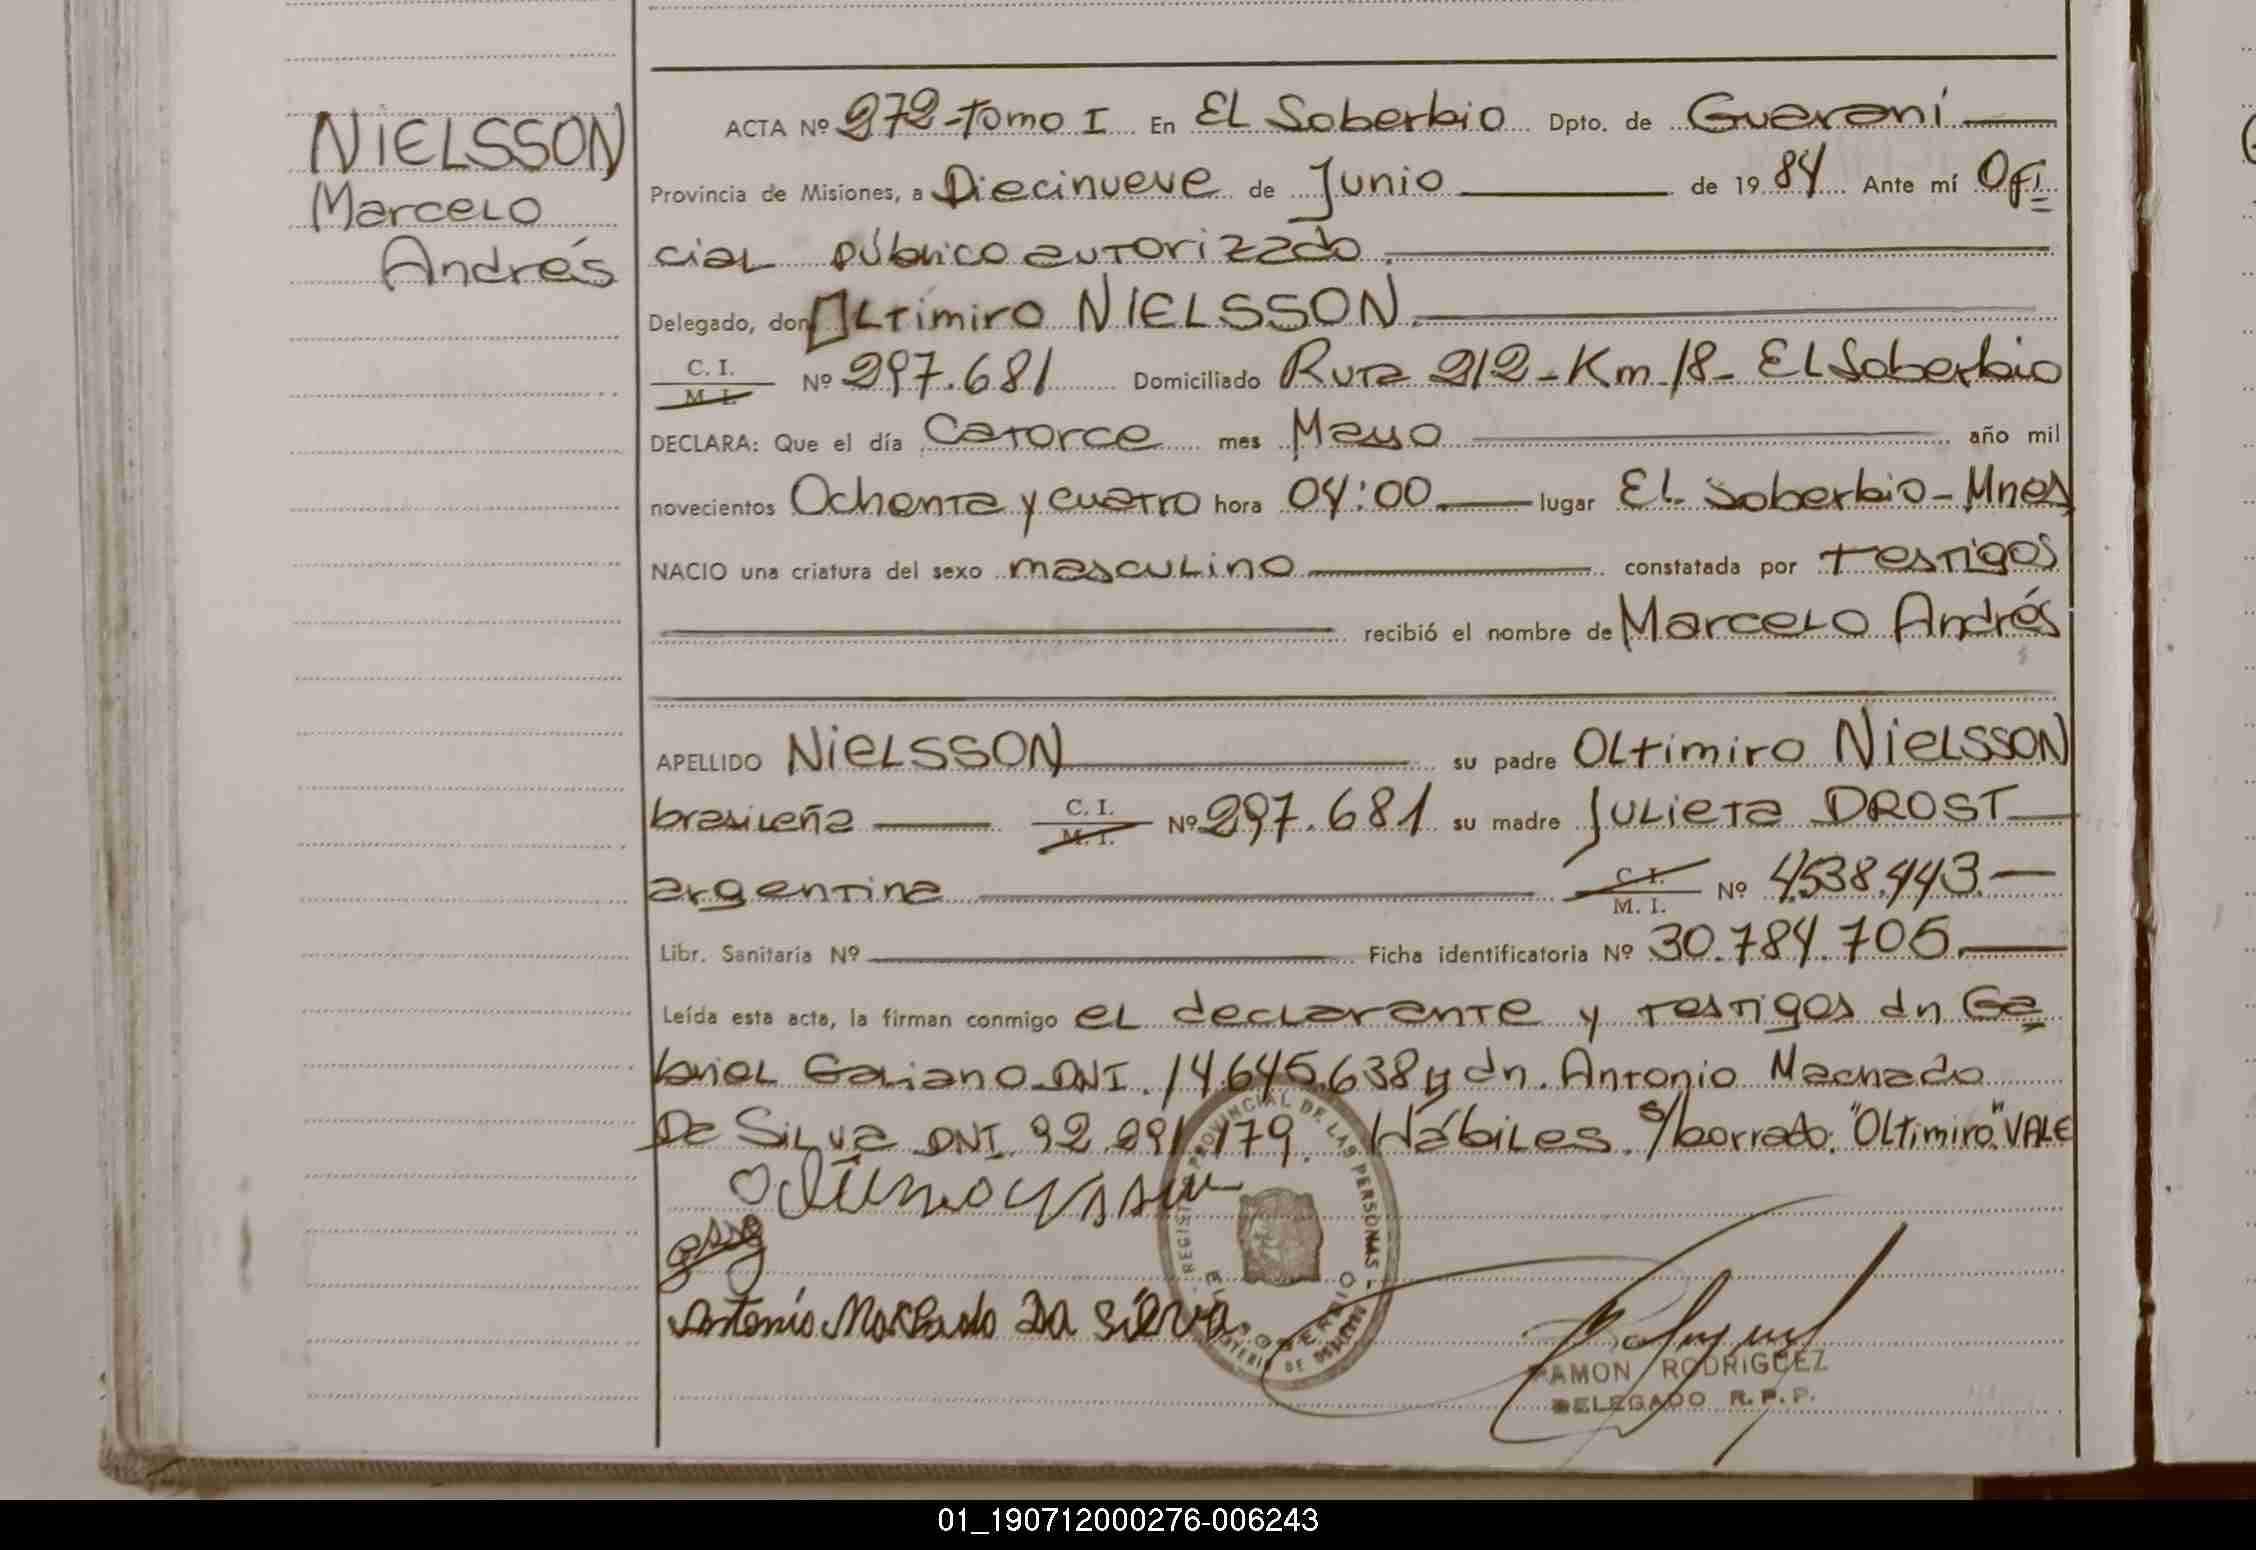 NIELSSON
Marcelo
Andrés
ACTA Nº 272-Tomo I En EL Soberbio Dpto. de Guaraní
Provincia de Misiones, a Diecinueve de Junio de 1984 Ante mí Ofi
cial público autorizado.
Delegado, don Oltimiro NIELSSON.
C. I.
M. I. Nº 297.681 Domiciliado Ruta 212-Km 18- El Soberbio
DECLARA: Que el día Catorce mes Mayo año mil
novecientos Ochenta y cuatro hora 04:00 lugar El Soberbio-Mnes
NACIO una criatura del sexo masculino constatada por testigos
recibió el nombre de Marcelo Andrés
APELLIDO NIELSSON su padre Oltimiro NIELSSON
brasileña C. I. M. I. Nº 297.681 su madre Julieta DROST
argentina C. I. M. I. Nº 4.538.443.
Libr. Sanitaria Nº Ficha identificatoria Nº 30.784.705.
Leída esta acta, la firman conmigo el declarante y testigos dn Ga
briel Galiano DNI. 14.645.638 y dn. Antonio Machado
Da Silva DNI. 92.291.179. Hábiles. s/borrado: "Oltimiro" VALE
Antonio Machado Da Silva
REGISTRO PROVINCIAL DE LAS PERSONAS
EL SOBERBIO
RAMON RODRIGUEZ
DELEGADO R. P. P.
01_190712000276-006243